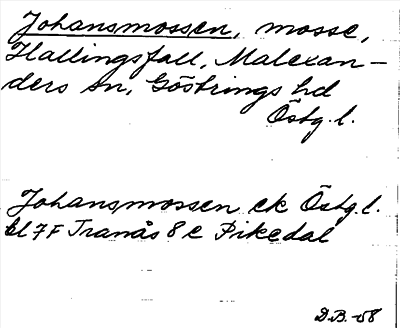 Johansmossen, mosse,
Hallingsfall, Malexan-
ders sn, Göstrings hd
Östg.l.
Johansmossen ek Östg.l.
bl 7F Tranås 8 c Pikedal
D.B. -58